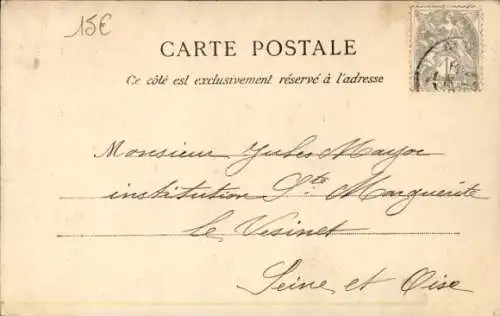 15€
CARTE POSTALE
Ce côté est exclusivement réservé à l'adresse
Monsieur Jules Mayor
institution Ste Marguerite
le Vésinet
Seine et Oise